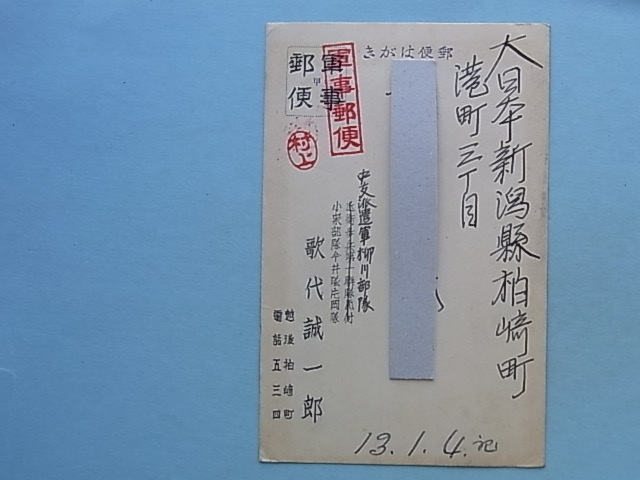 郵便はがき
大日本新潟縣柏崎町
港町三丁目
軍事
郵便
甲
軍事郵便
村上
中支派遣軍柳川部隊
小栗部隊今井隊応岡隊
歌代誠一郎
越後柏崎町
電話五三四
13.1.4.記